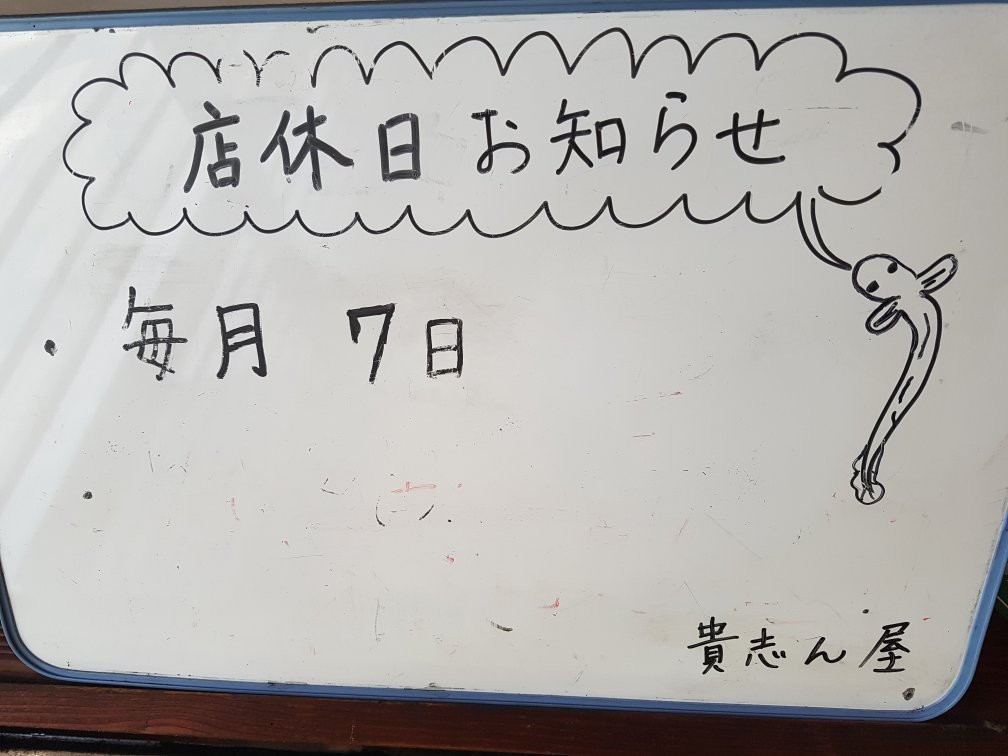 店休日お知らせ
・毎月 7日
貴志ん屋